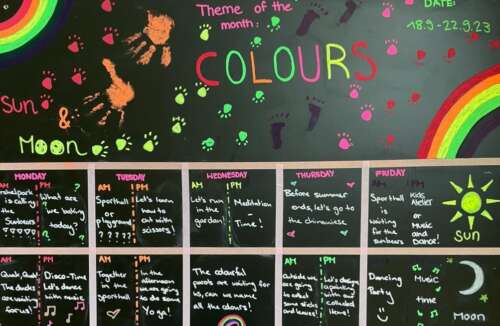 Theme of the
month:
DATE:
18.9-22.9.23
COLOURS
Sun
&
Moon
MONDAY
TUESDAY
WEDNESDAY
THURSDAY
FRIDAY
AM PM
is calling
the
Sunbears
? ? ? ? ?
What are
we baking
today?
AM PM
Sporthall
or
playground
? ? ? ? ?
Let's learn
how to
cut with
scissors!
AM PM
Let's run
in the
garden!
Meditation
Time!
Before summer
ends, let's go to
the
AM PM
Sporthall
is
waiting
for the
sunbears
Kids
Atelier
or
Music
and
DANCE!
Sun
Quak, Quak!
The ducks
are waiting
for us!
Disco-Time
Let's dance
with music
AM PM
Together
in the
Sporthall
In the
afternoon
we are going
to do some
Yoga!
The colourful
are waiting for
us, can we name
all the colours!
AM PM
Outside we
are going
to collect
some sticks
and leaves!
Let's design
a painting
with our
collected
leaves!
Dancing
Party
Music
time
Moon